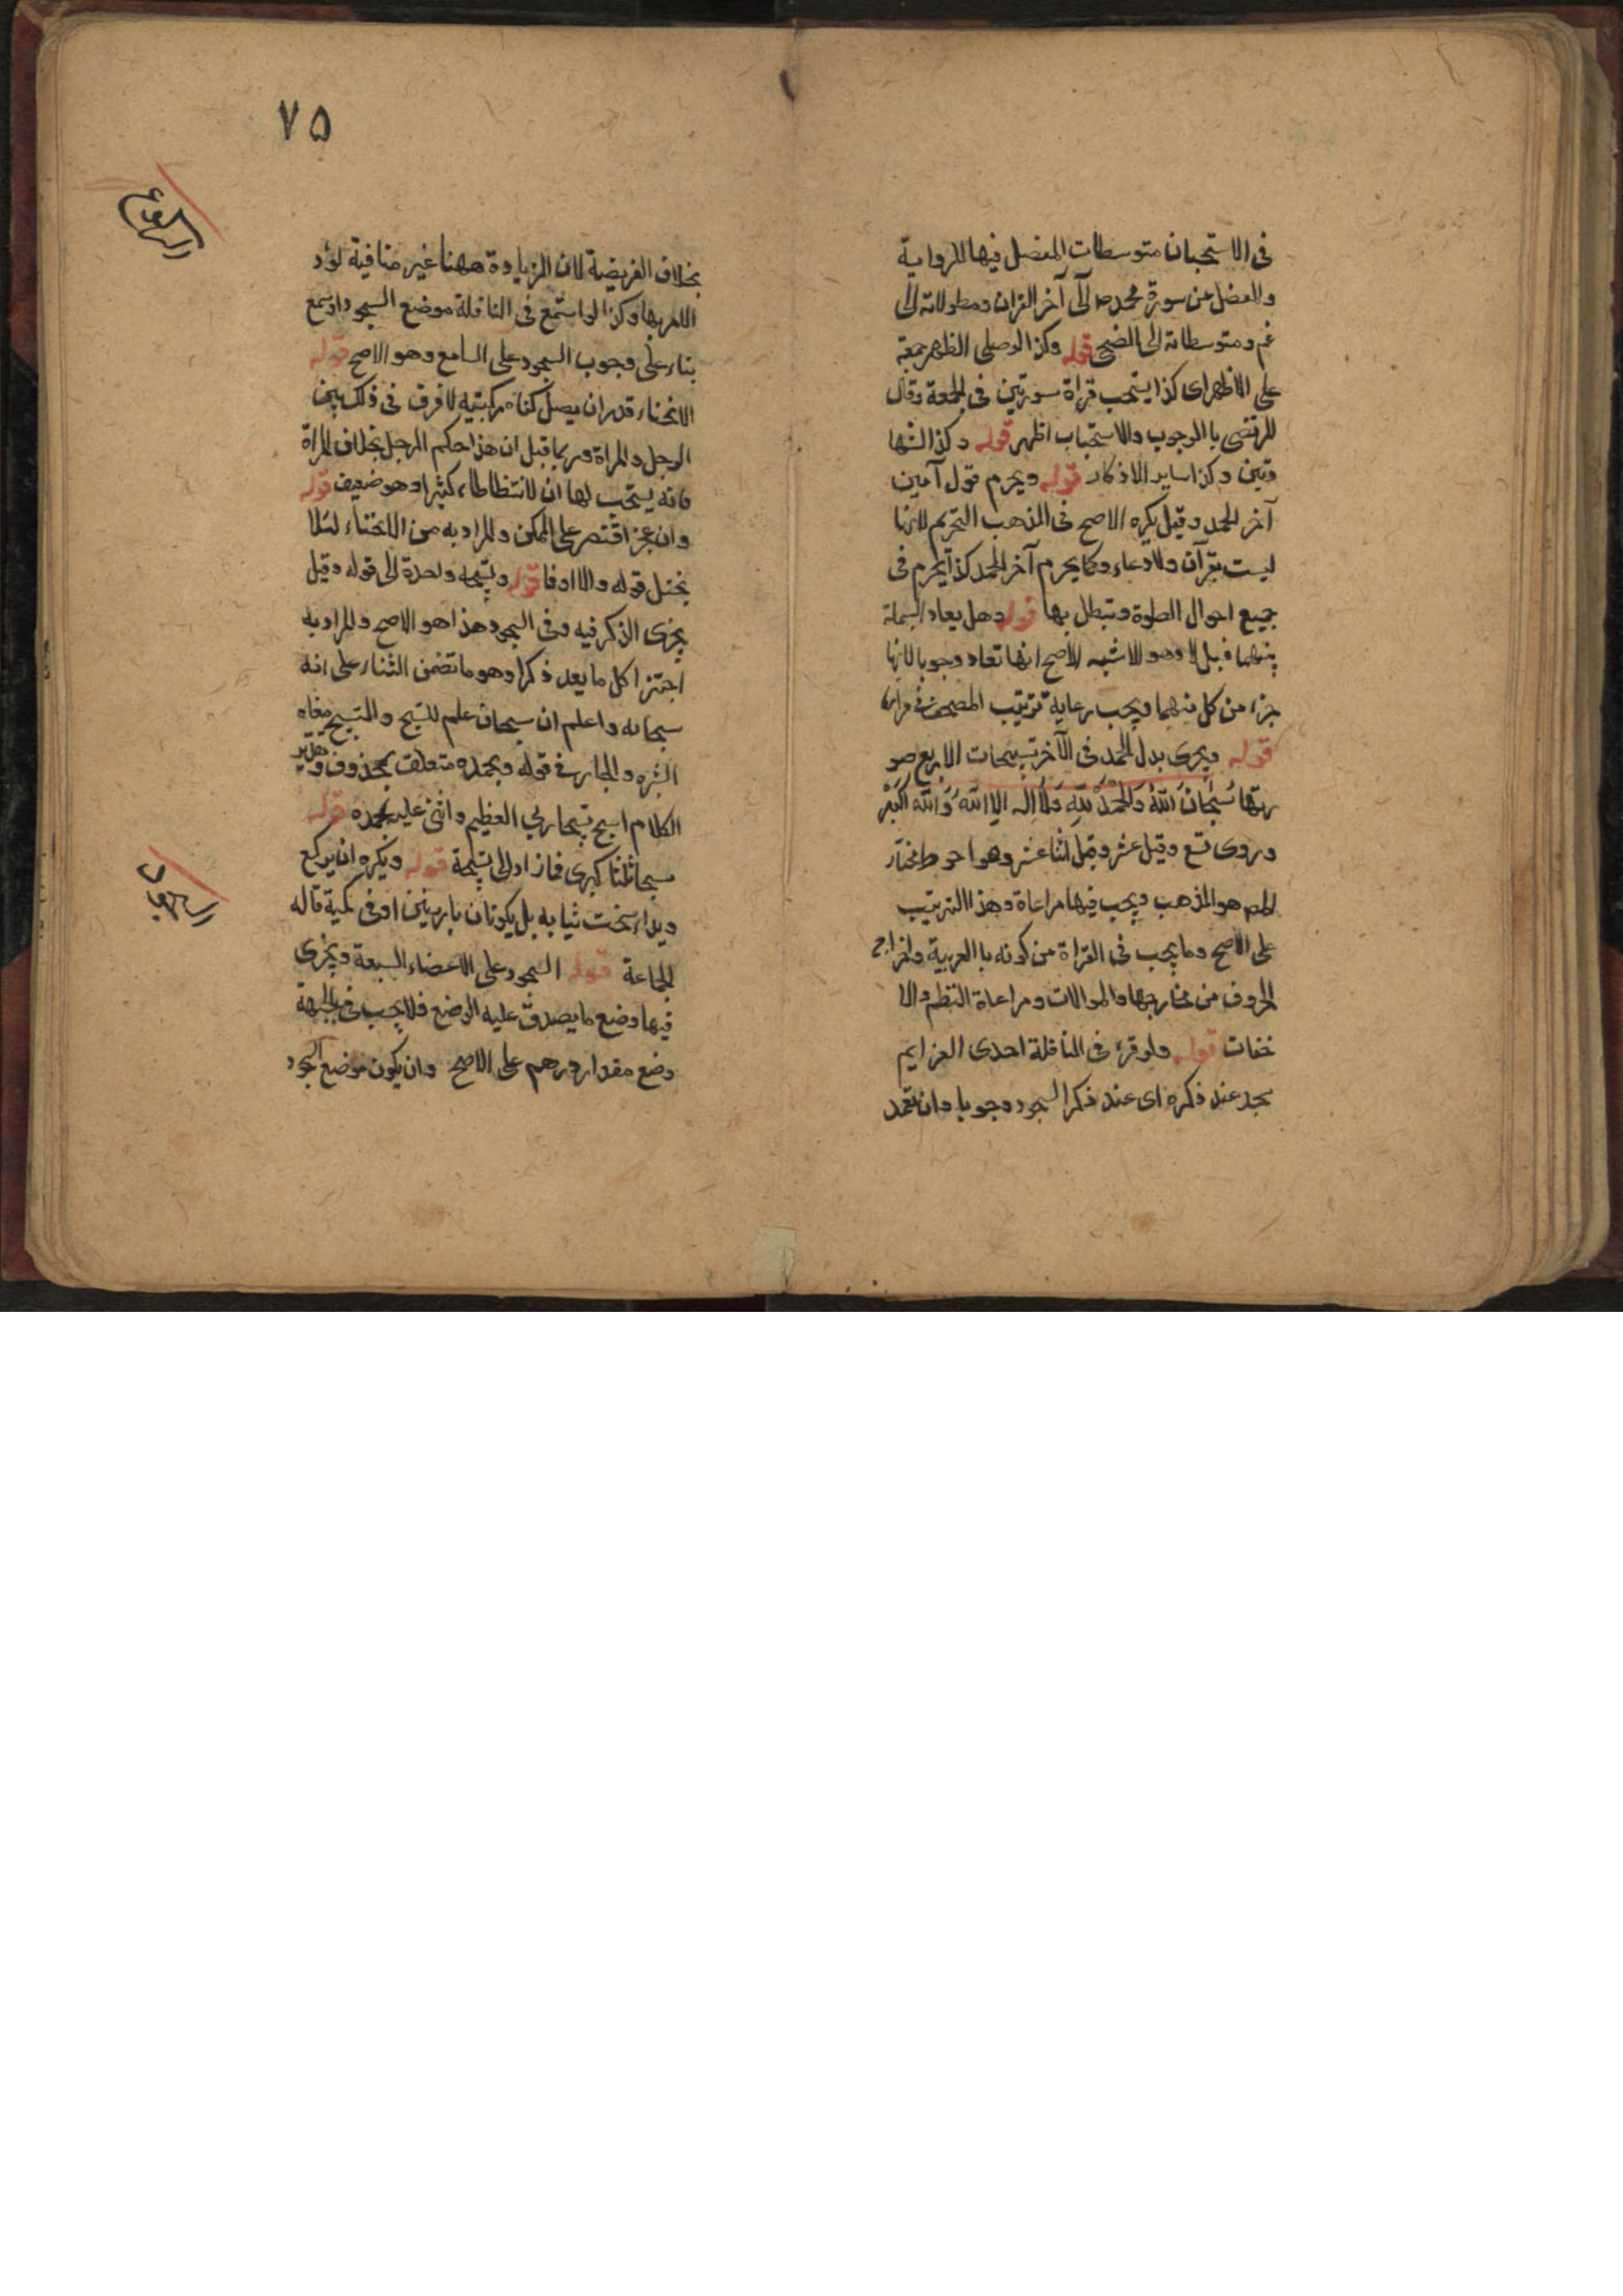 فى الاستحبان متوسطات المفصل فيها للرواية
والمفضل من سورة محمد ص الى آخر القران ومطولاته الى
عم ومتوسطاته الى الضحى قوله وكذا لو صلى الظهر جمعة
على الاظهر اى كذا يستحب قراة سورتين فى الجمعة وقال
المرتضى بالوجوب والاستحباب اظهر قوله وكذا الشها
دتين وكذا ساير الاذكار قوله ويحرم قول آمين
آخر الحمد وقيل يكره الاصح فى المذهب التحريم لانها
ليست بقرآن ولا دعاء وكما يحرم آخر الحمد كذا يحرم فى
جميع احوال الصلوة وتبطل بها قوله وهل يعاد البسملة
بينهما قيل لا وهو الاشبه الاصح انها تعاد وجوبا لانها
جزء من كل منهما ويجب رعاية ترتيب المصحف فى
قوله ويجزى بدل الحمد فى الآخر تسبيحات الاربع صو
رتها سُبْحَانَ اللّهُ وَالحَمْدُ للّهِ وَلَا اِله الا اللّهُ وَاللّه اَكْبَرْ
وروى تسع وقيل عشر وقيل اثنا عشر وهو احوط مختار
المص هو المذهب ويجب فيها مراعاة وهذا الترتيب
على الاصح وما يجب فى القراة من كونه با العربية واخراج
الحروف من مخارجها والموالات ومراعاة النظم والا
خفات قوله ولو قرء فى النافلة احدى العزايم
سجد عند ذكره اى عند ذكر السجود وجوبا وان تعمد
٧٥
بخلاف الفريضة لان الزيادة ههنا غير منافية لورد
الامر بها وكذا لو استمع فى النافلة موضع السجود او سمع
بناء على وجوب السجود على السامع وهو الاصح قوله
الركوع
الانحناء قدر ان يصل كفاه ركبتيه لا فرق فى ذلك بين
الرجل والمراة وربما قيل ان هذا حكم الرجل بخلاف المراة
فانه يستحب لها ان لا تتطاطاء كثيرا وهو ضعيف قوله
وان عجز اقتصر على الممكن والمراد به من الانحناء لئلا
يختل قوله والا اوفا قوله وتسبيحه واحدة الى قوله وقيل
يجزى الذكر فيه وفى السجود هذا هو الاصح والمراد به
اجتزا كل ما يعد ذكرا وهو ما تضمن الثناء على الله
سبحانه واعلم ان سبحان علم للتسبيح والتسبيح معناه
التنزه والجار فى قوله وبحمده متعلق بمحذوف وتقدير
الكلام اسبح تسبيحا ربي العظيم واثنى عليه بحمده قوله
سبحا ثلثا كبرى فما زاد الى تسبيحة قوله ويكره ان يركع
ويداه تحت ثيابه بل يكونان بارزتين او فى كميه قاله
الجماعة قوله السجود على الاعضاء السبعة ويجزى
السجود
فيها وضع ما يصدق عليه الوضع فلا يجب فى الجبهة
وضع مقدار درهم على الاصح وان يكون موضع السجود